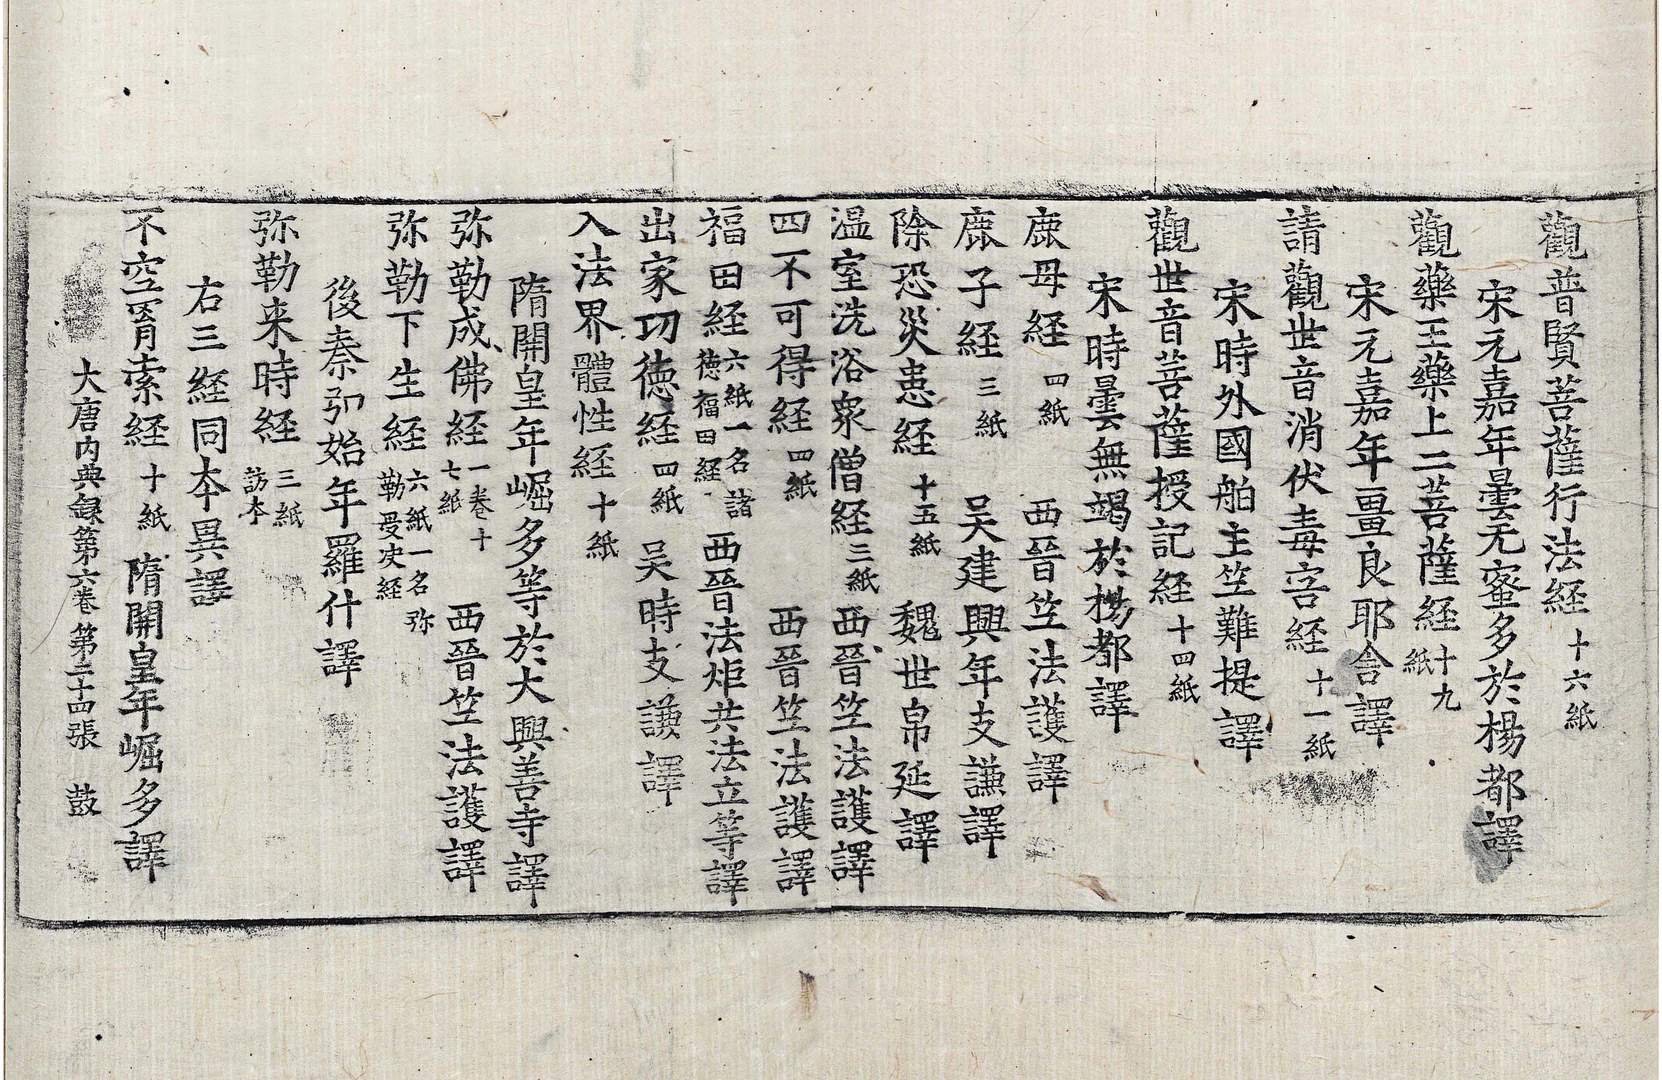 觀普賢菩薩行法経十六紙
宋元嘉年曇无蜜多於楊都譯
觀藥王藥上二菩薩経十九紙
宋元嘉年畺良耶舎譯
請觀世音消伏毒害経十一紙
宋時外國舶主竺難提譯
觀世音菩薩授記経十四紙
宋時曇無竭於楊都譯
鹿母経四紙 西晉竺法護譯
鹿子経三紙 吴建興年支謙譯
除恐災患経十五紙 魏世帛延譯
温室洗浴衆僧経三紙 西晉竺法護譯
四不可得経四紙 西晉竺法護譯
福田経六紙一名諸徳福田経 西晉法炬共法立等譯
出家功徳経四紙 吴時支謙譯
入法界體性経十紙
隋開皇年崛多等於大興善寺譯
弥勒成佛経一卷十七紙 西晉竺法護譯
弥勒下生経六紙一名弥勒受决経
後秦弘始年羅什譯
弥勒来時経三紙訪本
右三経同本異譯
不空罥索経十紙 隋開皇年崛多譯
大唐内典録第六卷 第二十四張 鼓